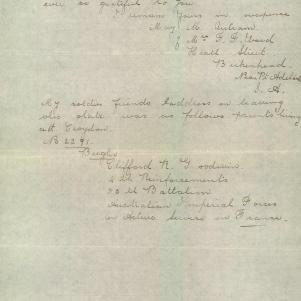 ever so grateful to you
remain yours in suspense
May M. Autram
% Mrs G. G. Ward
Heath Street
Birkenhead
Near Pt Adelaide
S. A.
My soldier friends address on leaving
this state was as follows parents living
att Croydon.
No 2291.
Bugler
Clifford R. Goodwin
4th Reinforcements
50th Battalion
Australian Imperial Forces
on Active Service in France.